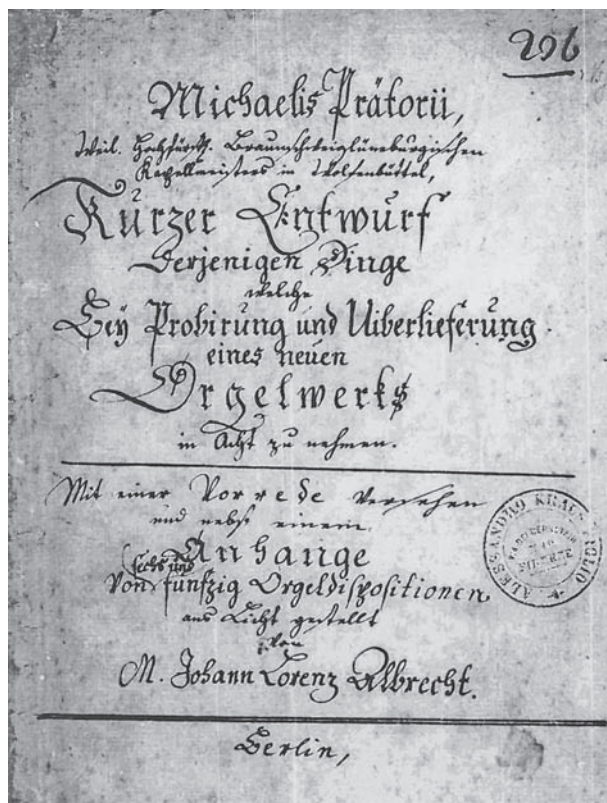 296
Michaelis Prätorii,
Weil. Hochfürstl. Braunschweiglüneburgischen
Kapellmeisters in Wolfenbüttel,
Kurzer Entwurf
derjenigen Dinge
welche
Bey Probirung und Uiberlieferung
eines neuen
Orgelwerks
in Acht zu nehmen.
Mit einer Vorrede versehen
und nebst einem
Anhange
sechs und
Von fünfzig Orgeldispositionen
ans Licht gestellt
von
M. Johann Lorenz Albrecht.
Berlin,
ALESSANDRO KRAUS FIGLIO
FIRENZE